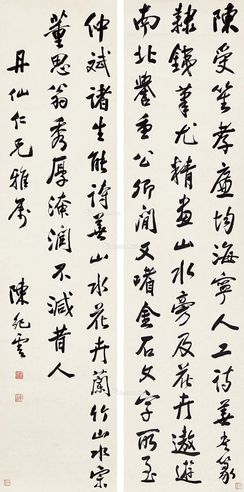 陳受笙孝廉均海寧人工詩善各篆
隸鐵筆尤精畫山水旁及花卉遨遊
南北譽重公卿間又嗜金石文字所至
仲斌諸生能詩善山水花卉蘭竹山水宗
董思翁秀厚淹潤不減昔人
丹仙仁兄雅屬 陳兆雲